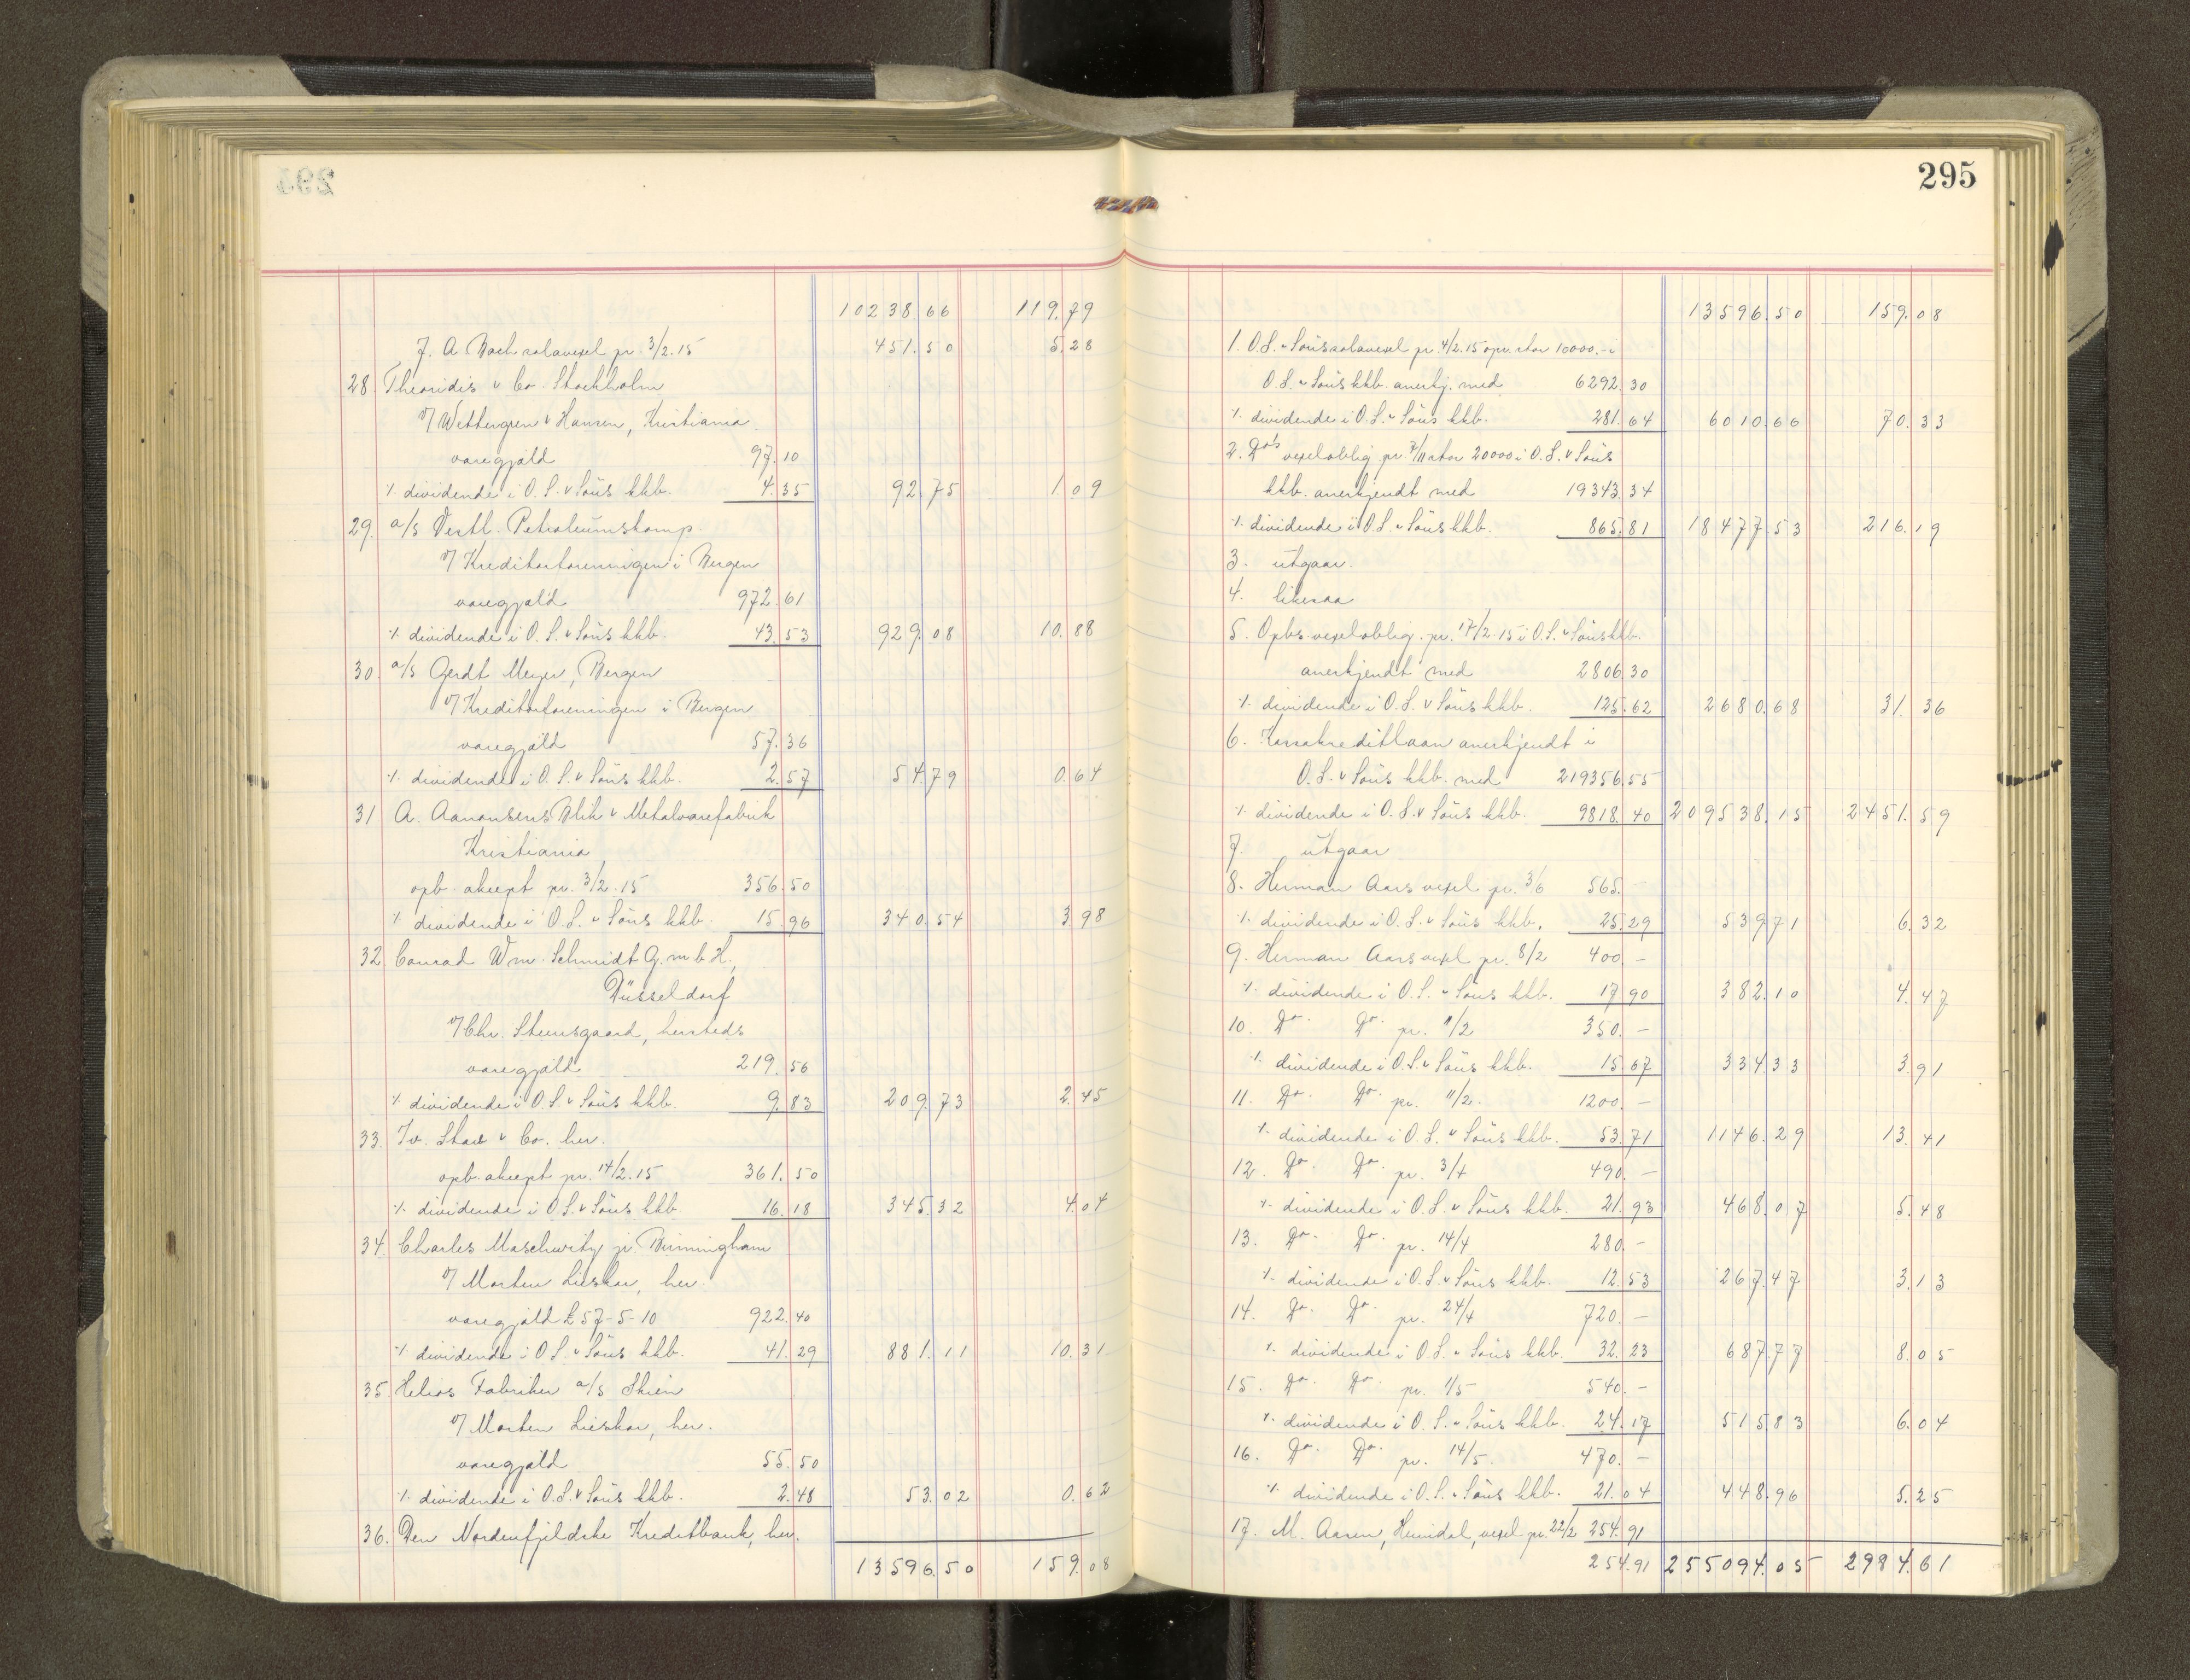 295
10238.66 119.79
J. A. Bach solavexel pr. 3/2.15 451.50 5.28
28. Theoridis & Co. Stockholm
v/ Wettergren & Hansen, Kristiania.
varegjæld 97.10
% dividende i O. S. & Søns kkb. 4.35 92.75 1.09
29. a/s Vestl. Petroleumskomp.
v/ Kreditorforeningen i Bergen
varegjæld 972.61
% dividende i O. S. & Søns kkb. 43.53 929.08 10.88
30. a/s Gerdt Meyer, Bergen
v/ Kreditorforeningen i Bergen
varegjæld 57.36
% dividende i O. S. & Søns kkb. 2.57 54.79 0.64
31. A. Aanonsens Blik & Metalvarefabrik
Kristiania,
opb. aksept pr. 3/2.15 356.50
% dividende i O. S. & Søns kkb. 15.96 340.54 3.98
32. Conrad Wm. Schmidt G. m b H.,
Düsseldorf
v/ Chr. Steensgaard, hersteds
varegjæld 219.56
% dividende i O. S. & Søns kkb. 9.83 209.73 2.45
33. Iv. & Co. her.
opb. aksept pr. 14/2.15 361.50
% dividende i O. S. & Søns kkb. 16.18 345.32 4.04
34. Charles Maschwitz jr. Birmingham
v/ Morten her.
varegjæld £ 57-5-10 922.40
% dividende i O. S. & Søns kkb. 41.29 881.11 10.31
35. Helios Fabriker a/s Skien
v/ Morten her.
varegjæld 55.50
% dividende i O. S. & Søns kkb. 2.48 53.02 0.62
36. Den Nordenfjeldske Kreditbank, her.
13596.50 159.08
13596.50 159.08
1. O. S. & Søns solavexel pr. 4/2.15 opr. stor 10000.- i
O. S. & Søns kkb. anerkj. med 6292.30
% dividende i O. S. & Søns kkb. 281.64 6010.66 70.33
2. Do's vexeloblig. pr. 7/11 stor 20000 i O. S. & Søns
kkb. anerkjendt med 19343.34
% dividende i O. S. & Søns kkb. 865.81 18477.53 216.19
3. utgaar.
4. likesaa
5. Opbs vexeloblig. pr. 17/2.15 i O. S. & Søns kkb.
anerkjendt med 2806.30
% dividende i O. S. & Søns kkb. 125.62 2680.68 31.36
6. Kassakreditlaan anerkjendt i
O. S. & Søns kkb. med 219356.55
% dividende i O. S. & Søns kkb. 9818.40 209538.15 2451.59
7. utgaar
8. Herman Aars vexel pr. 3/6 565.-
% dividende i O. S. & Søns kkb. 25.29 539.71 6.32
9. Herman Aars vexel pr. 8/2 400.-
% dividende i O. S. & Søns kkb. 17.90 382.10 4.47
10. Do. Do. pr. 11/2 350.-
% dividende i O. S. & Søns kkb. 15.67 334.33 3.91
11. Do. Do. pr. 11/2. 1200.-
% dividende i O. S. & Søns kkb. 53.71 1146.29 13.41
12. Do. Do. pr. 3/4 490.-
% dividende i O. S. & Søns kkb. 21.93 468.07 5.48
13. Do. Do. pr. 14/4 280.-
% dividende i O. S. & Søns kkb. 12.53 267.47 3.13
14. Do. Do. pr. 24/4 720.-
% dividende i O. S. & Søns kkb. 32.23 687.77 8.05
15. Do. Do. pr. 1/5 540.-
% dividende i O. S. & Søns kkb. 24.17 515.83 6.04
16. Do. Do. pr. 14/5. 470.-
% dividende i O. S. & Søns kkb. 21.04 448.96 5.25
17. M. Aasen, Heimdal, vexel pr. 22/2 254.91
254.91 255094.05 2984.61